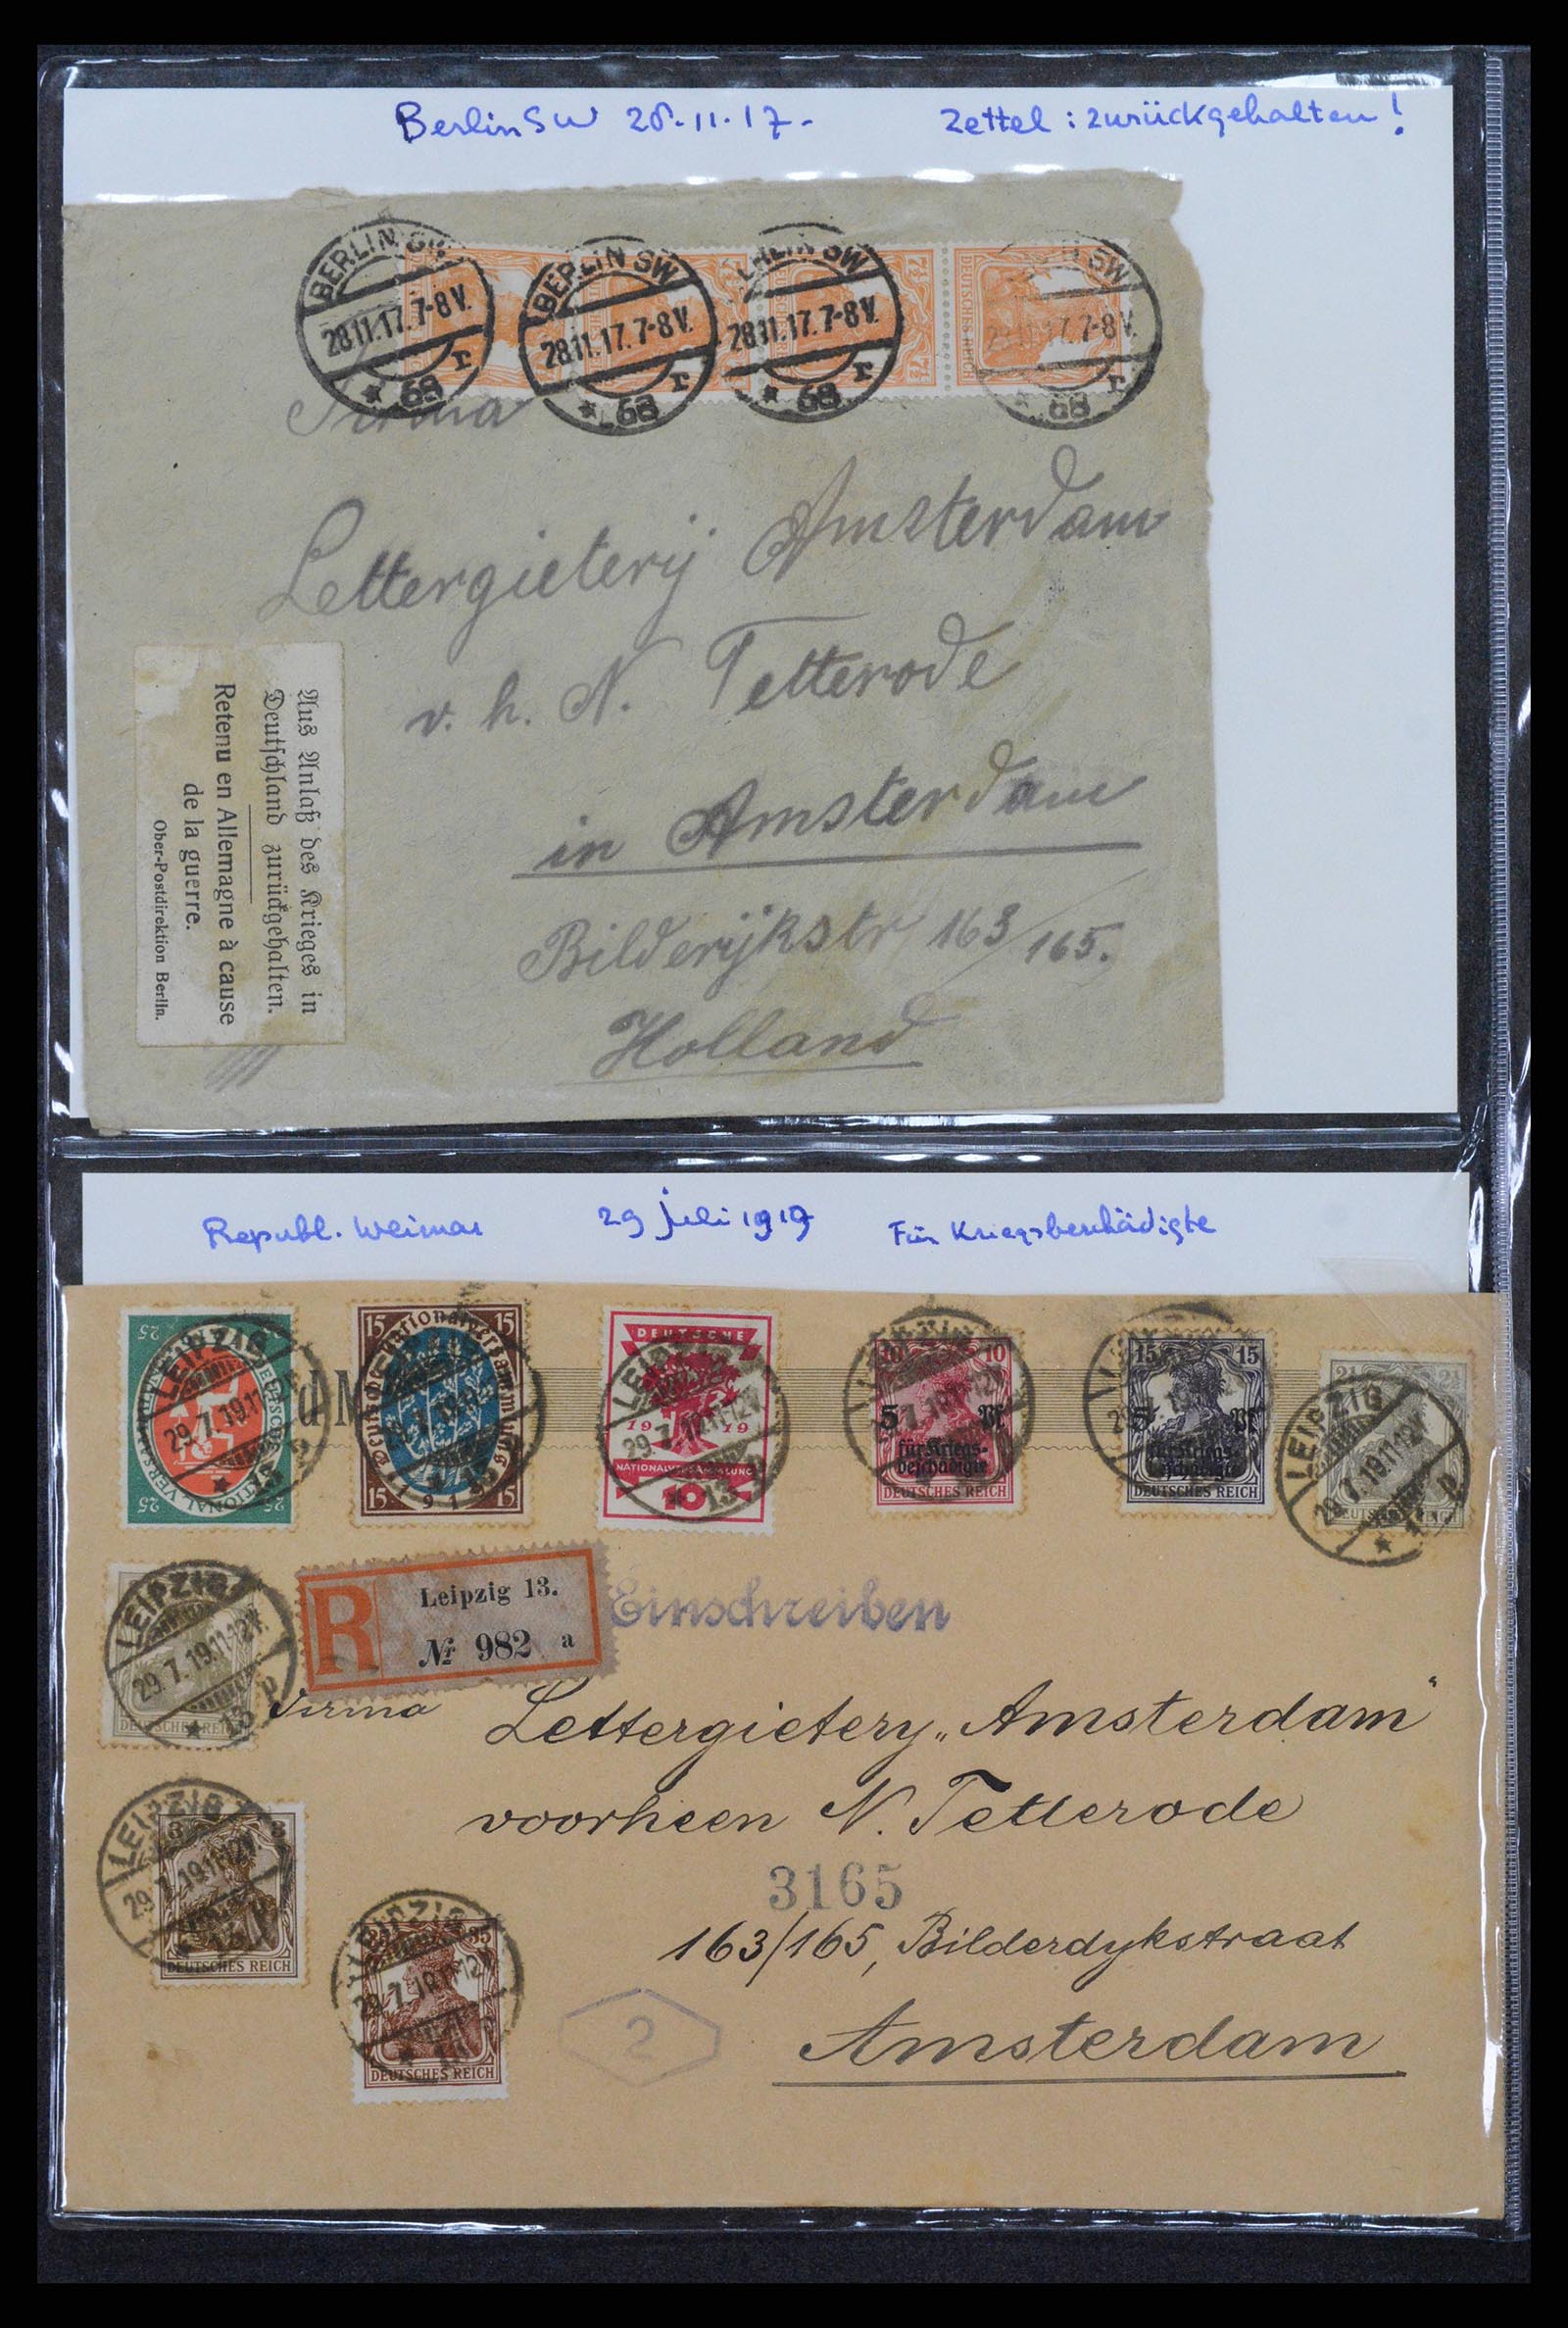 Berlin SW 28.11.17. Zettel: zurückgehalten!
BERLIN SW
28.11.17.7-8V.
* 68 r
BERLIN SW
28.11.17.7-8V.
* 68 r
BERLIN SW
28.11.17.7-8V.
* 68 r
SW
28.11.17.7-8V.
* 68 r
7½
DEUTSCHES REICH
Firma
Lettergieterij Amsterdam
v. h. N. Tetterode
in Amsterdam
Bilderijkstr 163/165.
Holland
Aus Anlaß des Krieges in
Deutschland zurückgehalten.
Retenu en Allemagne à cause
de la guerre.
Ober-Postdirektion Berlin.
Republ. Weimar 29 juli 1919 Für Kriegsbeschädigte
25 25
LEIPZIG
29.7.19.11-12V.
* 13 p
15 15
Deutsche Nationalversammlung
1919
15 15
DEUTSCHE
1919
NATIONALVERSAMMLUNG
10
10 10
5 Pf
für Kriegs-
beschädigte
DEUTSCHES REICH
15 15
5 Pf
für Kriegs-
beschädigte
DEUTSCHES REICH
2½ 2½
DEUTSCHES REICH
LEIPZIG
29.7.19.11-12V.
* p
LEIPZIG
29.7.19.11-12V.
* 13 p
DEUTSCHES REICH
R
Leipzig 13.
Nr 982 a
Einschreiben
Firma Lettergietery „Amsterdam"
voorheen N. Tetterode
3165
163/165, Bilderdykstraat
Amsterdam
LEIPZIG
29.7.19.11-12V.
3 3
DEUTSCHES REICH
LEIPZIG
29.7.19.11-12V.
35
DEUTSCHES REICH
2